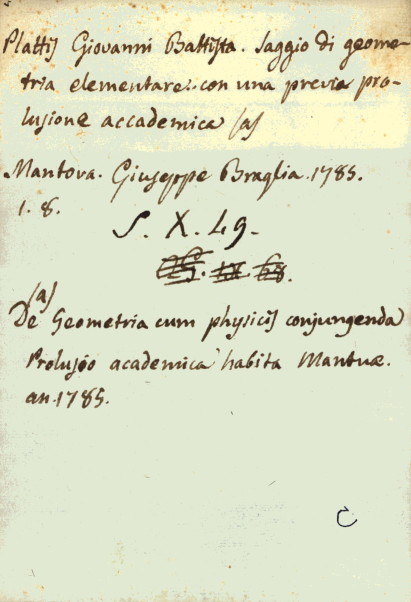 Plattis Giovanni Battista. Saggio di geome-
tria elementare con una previa pro-
lusione accademica (a)
Mantova. Giuseppe Braglia. 1785.
1. 8.
S. X. 49.
(a)
De Geometria cum physicis conjungenda
Prolusio academica habita Mantuæ.
an. 1785.
C